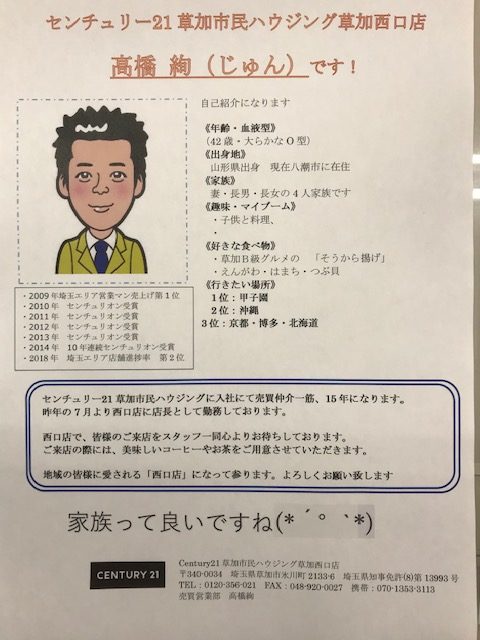 センチュリー21草加市民ハウジング草加西口店
高橋 絢（じゅん）です！
自己紹介になります
《年齢・血液型》
（42歳・大らかなO型）
《出身地》
山形県出身　現在八潮市に在住
《家族》
妻・長男・長女の4人家族です
《趣味・マイブーム》
・子供と料理、
・
《好きな食べ物》
・草加B級グルメの　「そうから揚げ」
・えんがわ・はまち・つぶ貝
《行きたい場所》
1位：甲子園
2位：沖縄
3位：京都・博多・北海道
・2009年埼玉エリア営業マン売上げ第1位
・2010年　センチュリオン受賞
・2011年　センチュリオン受賞
・2012年　センチュリオン受賞
・2013年　センチュリオン受賞
・2014年　10年連続センチュリオン受賞
・2018年　埼玉エリア店舗進捗率　第2位
センチュリー21草加市民ハウジングに入社にて売買仲介一筋、15年になります。
昨年の7月より西口店に店長として勤務しております。
西口店で、皆様のご来店をスタッフ一同心よりお待ちしております。
ご来店の際には、美味しいコーヒーやお茶をご用意させていただきます。
地域の皆様に愛される「西口店」になって参ります。よろしくお願い致します
家族って良いですね(*´꒳`*)
CENTURY 21
Century21草加市民ハウジング草加西口店
〒340-0034　埼玉県草加市氷川町2133-6　埼玉県知事免許(8)第13993号
TEL：0120-356-021　FAX：048-920-0027　携帯：070-1353-3113
売買営業部　高橋絢